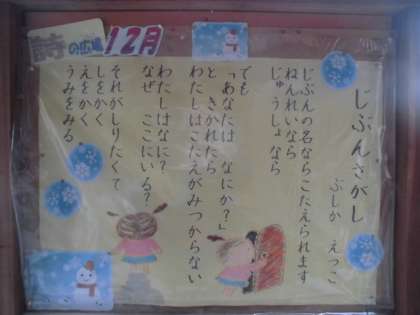 詩の広場 12月
じぶんさがし
ぶしか えつこ
じぶんの名ならこたえられます
ねんれいなら
じゅうしょなら
でも
「あなたは なにか?」
と きかれたら
わたしはこたえがみつからない
わたしはなに?
なぜ ここにいる?
それがしりたくて
しをかく
えをかく
うみをみる